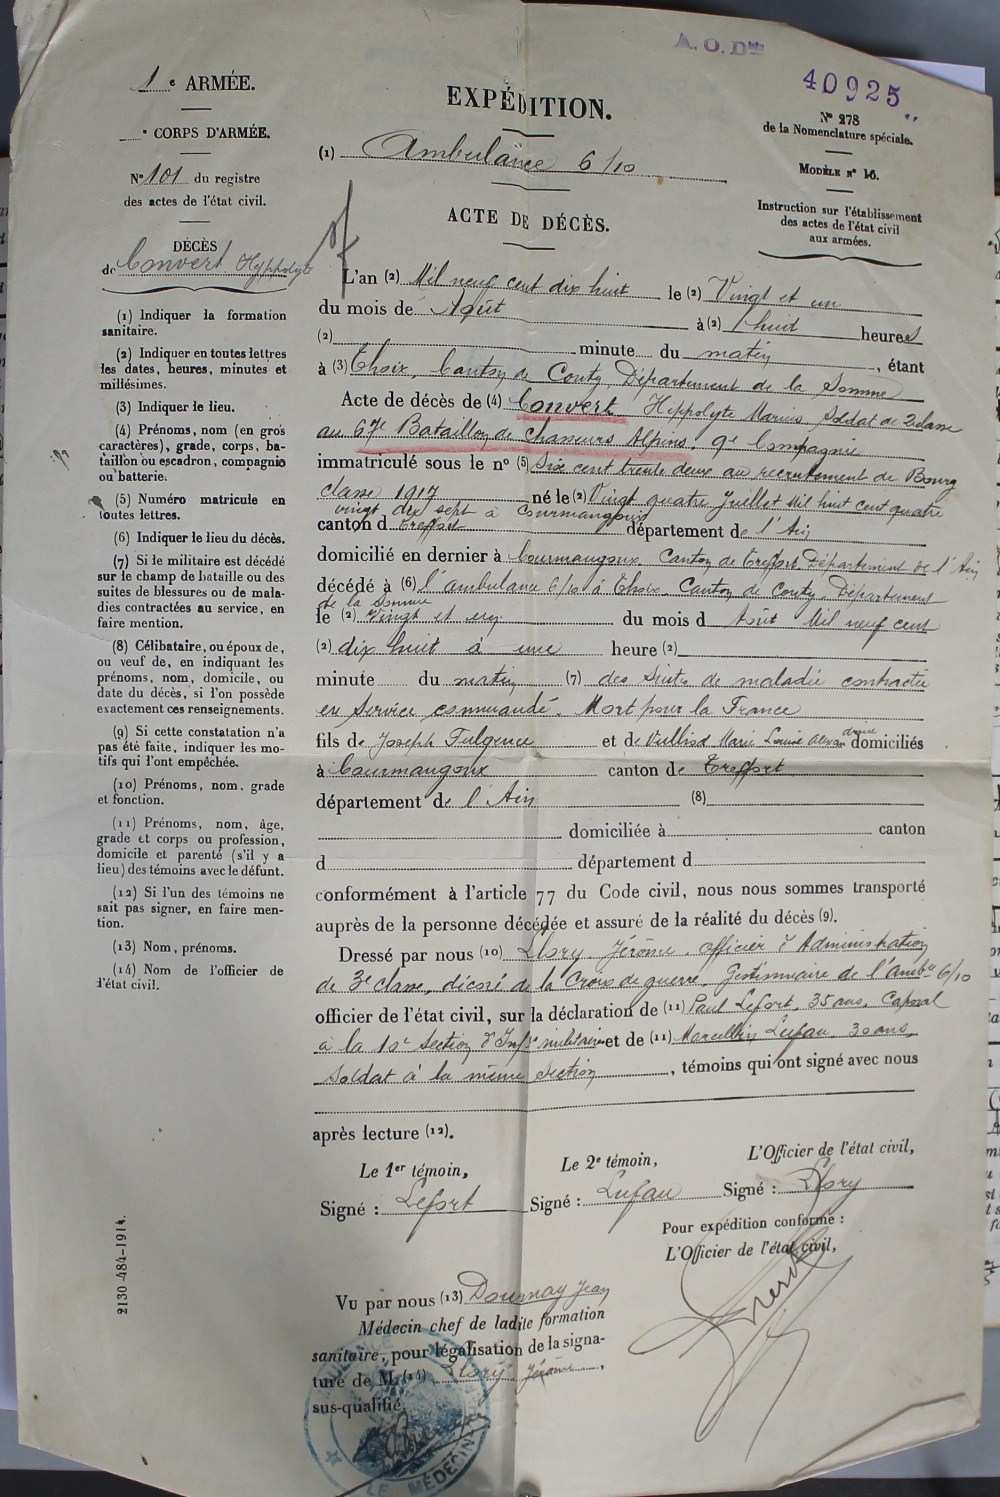 A. O. D
40925
1e ARMÉE.
e CORPS D'ARMÉE.
N° 101 du registre
des actes de l'état civil.
DÉCÈS
de Convert Hyppolyte
(1) Indiquer la formation
sanitaire.
(2) Indiquer en toutes lettres
les dates, heures, minutes et
millésimes.
(3) Indiquer le lieu.
(4) Prénoms, nom (en gros
caractères), grade, corps, ba-
taillon ou escadron, compagnie
ou batterie.
(5) Numéro matricule en
toutes lettres.
(6) Indiquer le lieu du décès.
(7) Si le militaire est décédé
sur le champ de bataille ou des
suites de blessures ou de mala-
dies contractées au service, en
faire mention.
(8) Célibataire, ou époux de,
ou veuf de, en indiquant les
prénoms, nom, domicile, ou
date du décès, si l'on possède
exactement ces renseignements.
(9) Si cette constatation n'a
pas été faite, indiquer les mo-
tifs qui l'ont empêchée.
(10) Prénoms, nom, grade
et fonction.
(11) Prénoms, nom, âge,
grade et corps ou profession,
domicile et parenté (s'il y a
lieu) des témoins avec le défunt.
(12) Si l'un des témoins ne
sait pas signer, en faire men-
tion.
(13) Nom, prénoms.
(14) Nom de l'officier de
l'état civil.
2130-484-1914.
EXPÉDITION.
(1) Ambulance 6/10
ACTE DE DÉCÈS.
N° 278
de la Nomenclature spéciale.
MODÈLE N° 16.
Instruction sur l'établissement
des actes de l'état civil
aux armées.
L'an (2) Mil neuf cent dix huit le (2) Vingt et un
du mois de Août à (2) huit heures
(2) minute du matin, étant
à (3) Thoix, Canton de Conty, Département de la Somme
Acte de décès de (4) Convert Hippolyte Marius Soldat de 2 classe
au 67e Bataillon de Chasseurs Alpins, 9e Compagnie
immatriculé sous le n° (5) Six cent trente deux au recrutement de Bourg
classe 1917 né le (2) Vingt quatre Juillet Mil huit cent quatre
vingt dix sept à Courmangoux
canton d Treffort département de l'Ain
domicilié en dernier à Courmangoux, Canton de Treffort Département de l'Ain
décédé à (6) l'ambulance 6/10 à Thoix, Canton de Conty, Département
de la Somme
le (2) Vingt et un du mois d Août Mil neuf cent
(2) dix huit à une heure (2)
minute du matin (7) des suites de maladie contractée
en Service commandé. Mort pour la France
fils de Joseph Fulgence et de Vulliod Marie Louise Alexandrine domiciliés
à Courmangoux canton de Treffort
département de l'Ain (8)
domiciliée à canton
d département d
conformément à l'article 77 du Code civil, nous nous sommes transporté
auprès de la personne décédée et assuré de la réalité du décès (9).
Dressé par nous (10) Llory Jérôme, officier d'Administration
de 3e classe, décoré de la Croix de guerre, Gestionnaire de l'Ambce 6/10
officier de l'état civil, sur la déclaration de (11) Paul Lefort, 35 ans, Caporal
à la 10e Section d'Infrs militaires et de (11) Marcellin Lufau, 30 ans,
Soldat à la même Section, témoins qui ont signé avec nous
après lecture (12).
Le 1er témoin,
Signé : Lefort
Le 2e témoin,
Signé : Lufau
L'Officier de l'état civil,
Signé : Llory
Pour expédition conforme :
L'Officier de l'état civil,
VU par nous (13) Dournay Jean
Médecin chef de ladite formation
sanitaire, pour légalisation de la signa-
ture de M. (14) Llory Jérôme,
sus-qualifié.
LE MÉDECIN